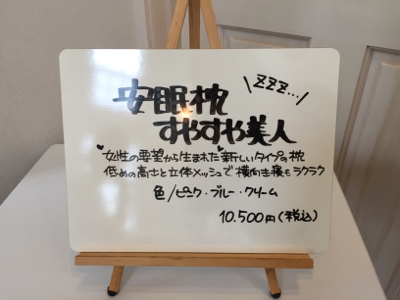 安眠枕
\ZZZ.../
すやすや美人
女性の要望から生まれた新しいタイプの枕
低めの高さと立体メッシュで横向き寝もラクラク
色/ピンク・ブルー・クリーム
10.500円(税込)